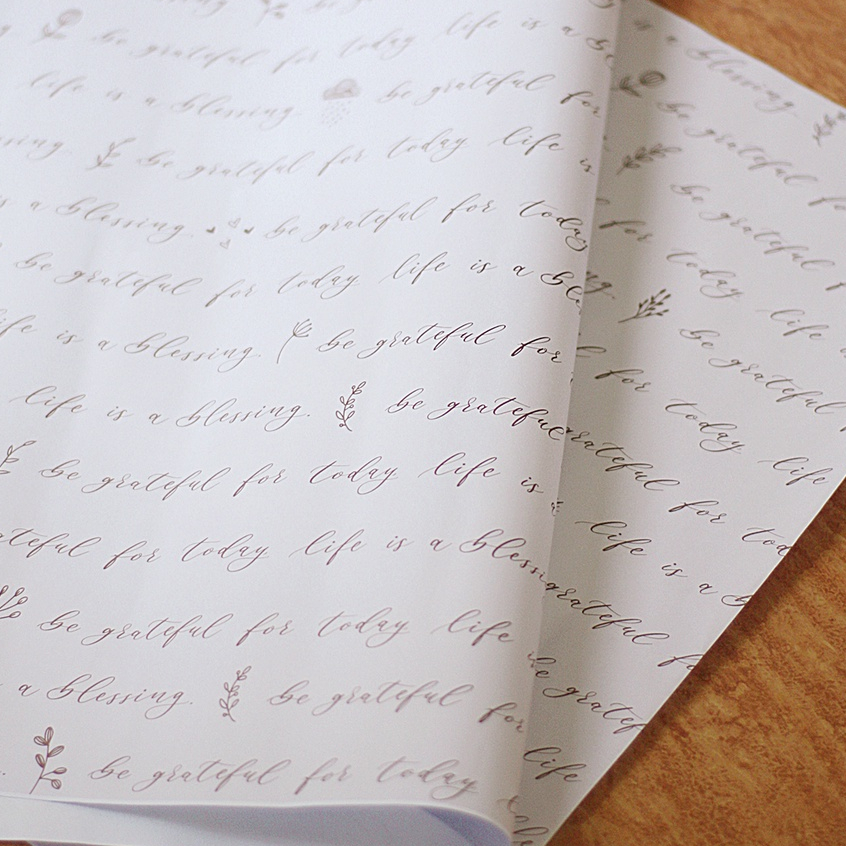 be grateful for today life is a
life is a blessing. be grateful for
be grateful for today life is
is a blessing be grateful for today
be grateful for today life is a
life is a blessing be grateful for
life is a blessing. be grateful
be grateful for today life is
for today life is a
be grateful for today life
a blessing. be grateful for
be grateful for today
is a blessing
be grateful
be grateful
for today life
be grateful
for today life
grateful for
life is a
grateful
be
life